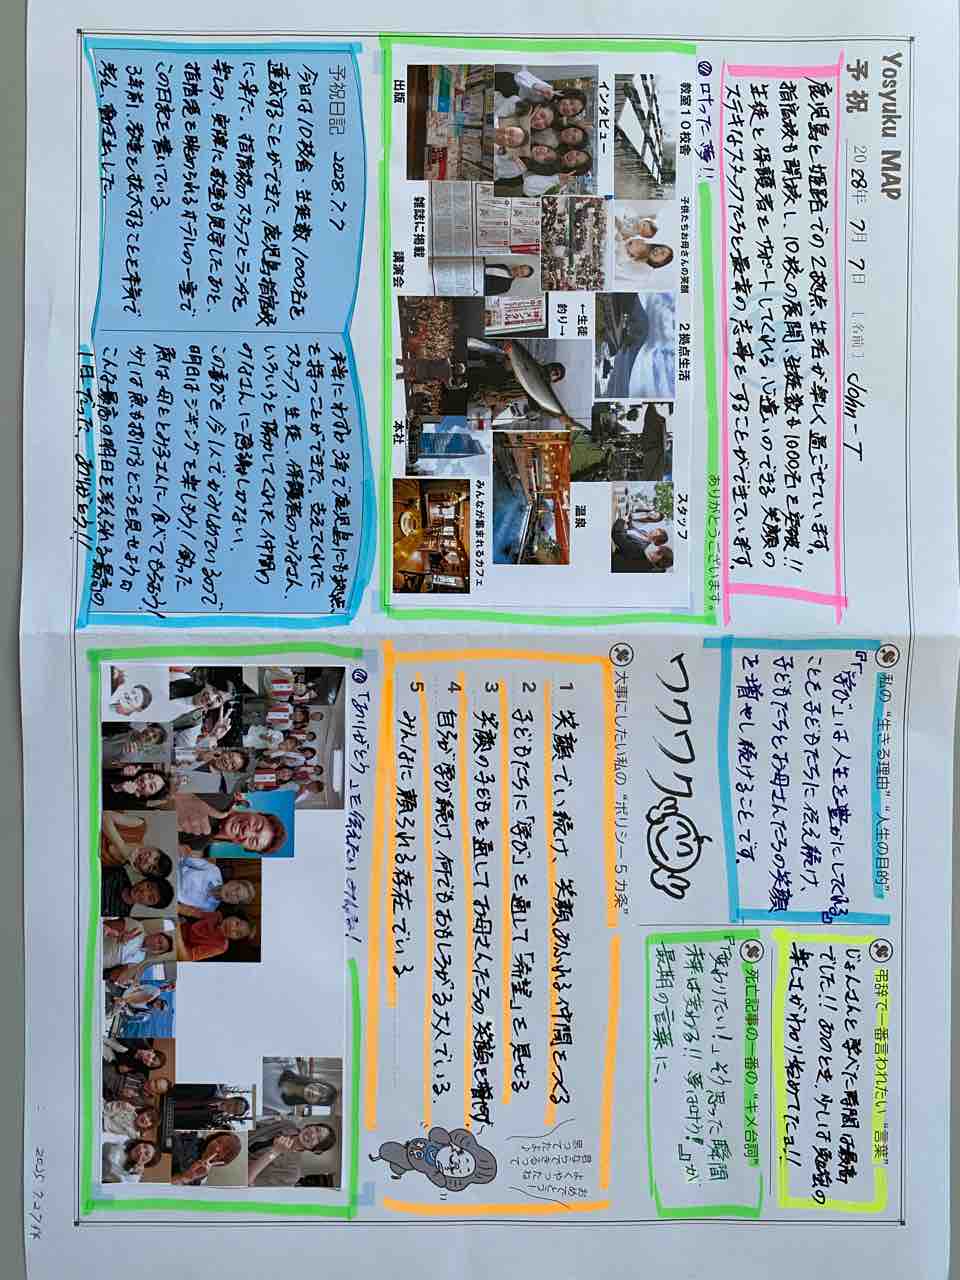 Yosyuku MAP
予祝 2028年 7月 7日 [名前] John-T
鹿児島と姫路での2拠点生活が楽しく過ごせています。
指宿校も開校し、10校の展開、生徒数も1000名を突破!!
生徒と保護者をサポートしてくれる心遣いのできる笑顔の
ステキなスタッフたちと最幸の志事をすることができています。
叶った夢!!
ありがとうございます。
教室10校舎
子供たちお母さんの笑顔
2拠点生活
スタッフ
インタビュー
←生徒
釣り→
温泉
出版
雑誌に掲載
講演会
本社
みんなが集まれるカフェ
予祝日記 2028.7.7
今日は10校舎・生徒数1000名を
達成することができた鹿児島指宿校
に来た。指宿校のスタッフとランチを
楽しみ、実際に教室も見学したあと、
指宿湾を眺められるホテルの一室で
この日記を書いている。
3年前、教室を拡大することを本気で
考え、動き出した。
本当にわずか3年で鹿児島にも拠点
を持つことができた。支えてくれた
スタッフ、生徒、保護者のみなさん、
いろいろと協力してくれた仲間
のみなさんに感謝しかない。
この喜びを今1人でかみしめているので
明日はジギングを楽しもう!釣った
魚は母とトみ子さんに食べてもらおう!
少しは親も投げるところを見せようか
こんな最高の明日を考えられる最高の
1日だった。ありがとう!!
私の“生きる理由”“人生の目的”
『「学び」は人生を豊かにしてくれる』
ことを子どもたちに伝え続け、
子どもたちとお母さんたちの笑顔
を増やし続けることです。
ワクワク
弔辞で一番言われたい“言葉”
じょんさんと学べた時間は最高
でした!!あのとき、少しは勉強の
楽しさがわかり始めてたョ!!
死亡記事の一番の“キメ台詞”
『「変わりたい!」そう思った瞬間
種は変わる!!夢は叶う!』が
最期の言葉に。
大事にしたい私の“ポリシー5カ条”
1 笑顔でい続け、笑顔あふれる仲間とべる
2 子どもたちに「学び」を通して「希望」を見せる
3 笑顔の子どもを通してお母さんたちの笑顔を増やす
4 自らが学び続け、何でもおもしろがる大人でいる
5 みんなに頼られる存在でいる
おめでとうー!
よくやったね
君ならできるって
思ってたよ♪
「ありがとう」を伝えたい みんな!
2025.7.27作